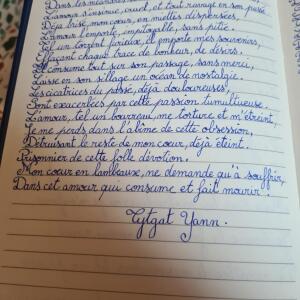 Dans les méandres
L'amour s'insinue, cruel, et tout ravagé en son passé
Déjà brisé, mon cœur, en miettes dispersées,
L'amour l'emporte, impitoyable, sans pitié.
Tel un torrent furieux, il emporte mes souvenirs,
Effaçant chaque trace de bonheur, de désirs.
Il consume tout sur son passage, sans merci,
Laisse en son sillage un océan de nostalgie.
Les cicatrices du passé, déjà douloureuses,
Sont exacerbées par cette passion tumultueuse.
L'amour, tel un bourreau, me torture et m'étreint,
Je me perds dans l'abîme de cette obsession,
Détruisant le reste de mon cœur, déjà éteint.
Prisonnier de cette folle dévotion.
Mon cœur en lambeaux, ne demande qu'à souffrir,
Dans cet amour qui consume et fait mourir.
Tytgat Yann.